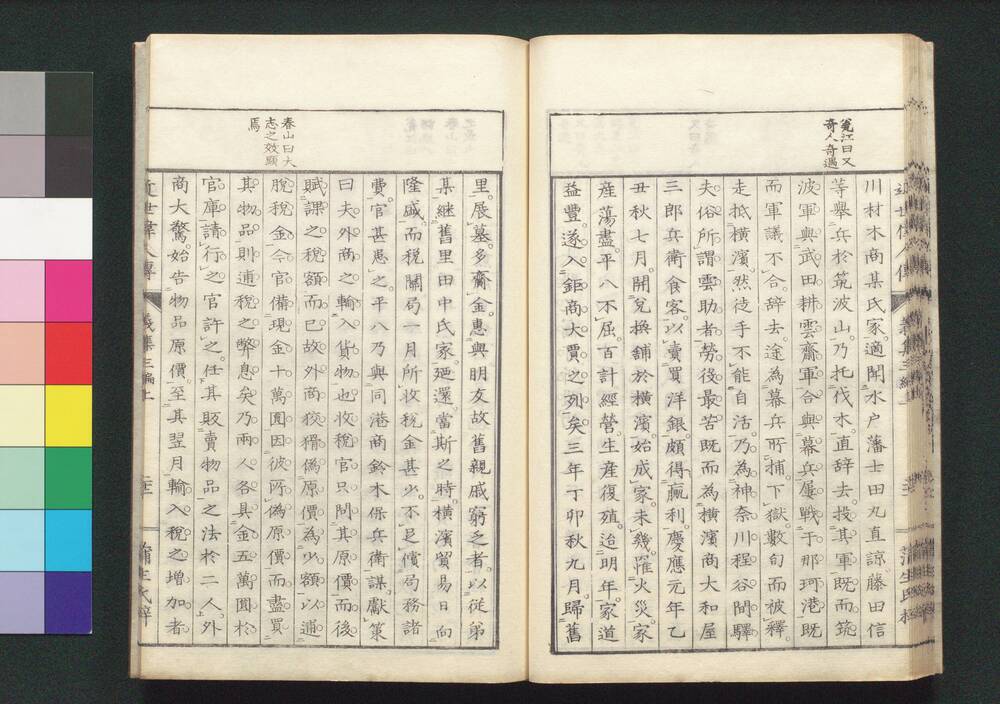 甕江曰又
奇人奇遇
川材木商某氏家適聞水户藩士田丸直諒藤田信
等舉兵於筑波山乃托伐木直辞去投其軍既而筑
波軍與武田耕雲齋軍合與幕兵屢戰于那珂港既
而軍議不合辞去途為幕兵所捕下獄數旬而被釋
走抵橫濱然徒手不能自活乃為神奈川程谷間驛
夫俗所謂雲助者勞役最苦既而為橫濱商大和屋
三郎兵衛食客以賣買洋銀頗得贏利慶應元年乙
丑秋七月開兌換舖於橫濱始成家未幾罹火災家
産蕩盡平八不屈百計經營生産復殖迨明年家道
益豐遂入鉅商大賈之列矣三年丁卯秋九月歸舊
春山曰大
志之效顕
焉
里展墓多齎金惠與朋友故舊親戚窮乏者以從弟
某継舊里田中氏家廼還當斯之時橫濱貿易日向
隆盛而税關局一月所收税金甚少不足償局務諸
費官甚患之平八乃與同港商鈴木保兵衛謀獻策
曰夫外商之輸入貨物也收税官只問其原價而後
賦課之税額而已故外商狡猾偽原價為少額以逋
脱税金令官備現金十萬圓因彼所偽原價而盡買
其物品則逋税之弊息矣乃兩人各具金五萬圓於
官庫請行之官許之任其販賣物品之法於二人外
商大驚始告物品原價至其翌月輸入税之増加者
近世偉人傳
義集三編上
蒲生氏梓